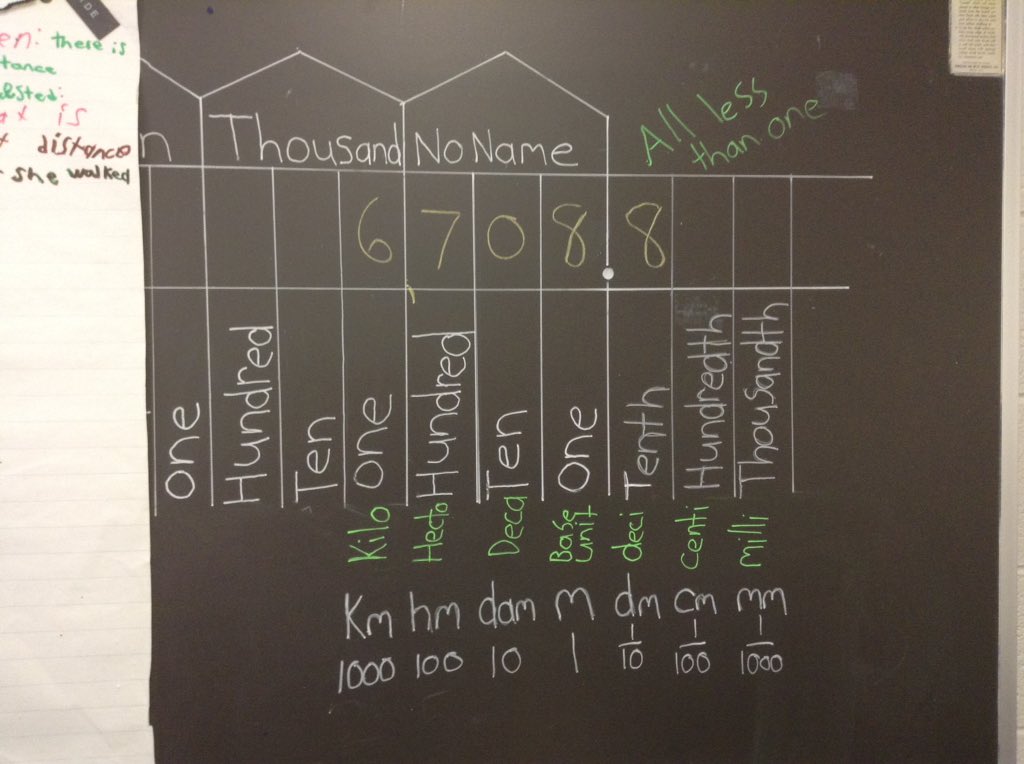 en: there is
tance
is
distance
she walked
n Thousand No Name
All less
than one
6 7 0 8 . 8
,
one Hundred Ten one Hundred Ten one Tenth Hundredth Thousandth
Kilo Hecto Deca Base unit deci centi milli
Km hm dam m dm cm mm
1000 100 10 1 1/10 1/100 1/1000